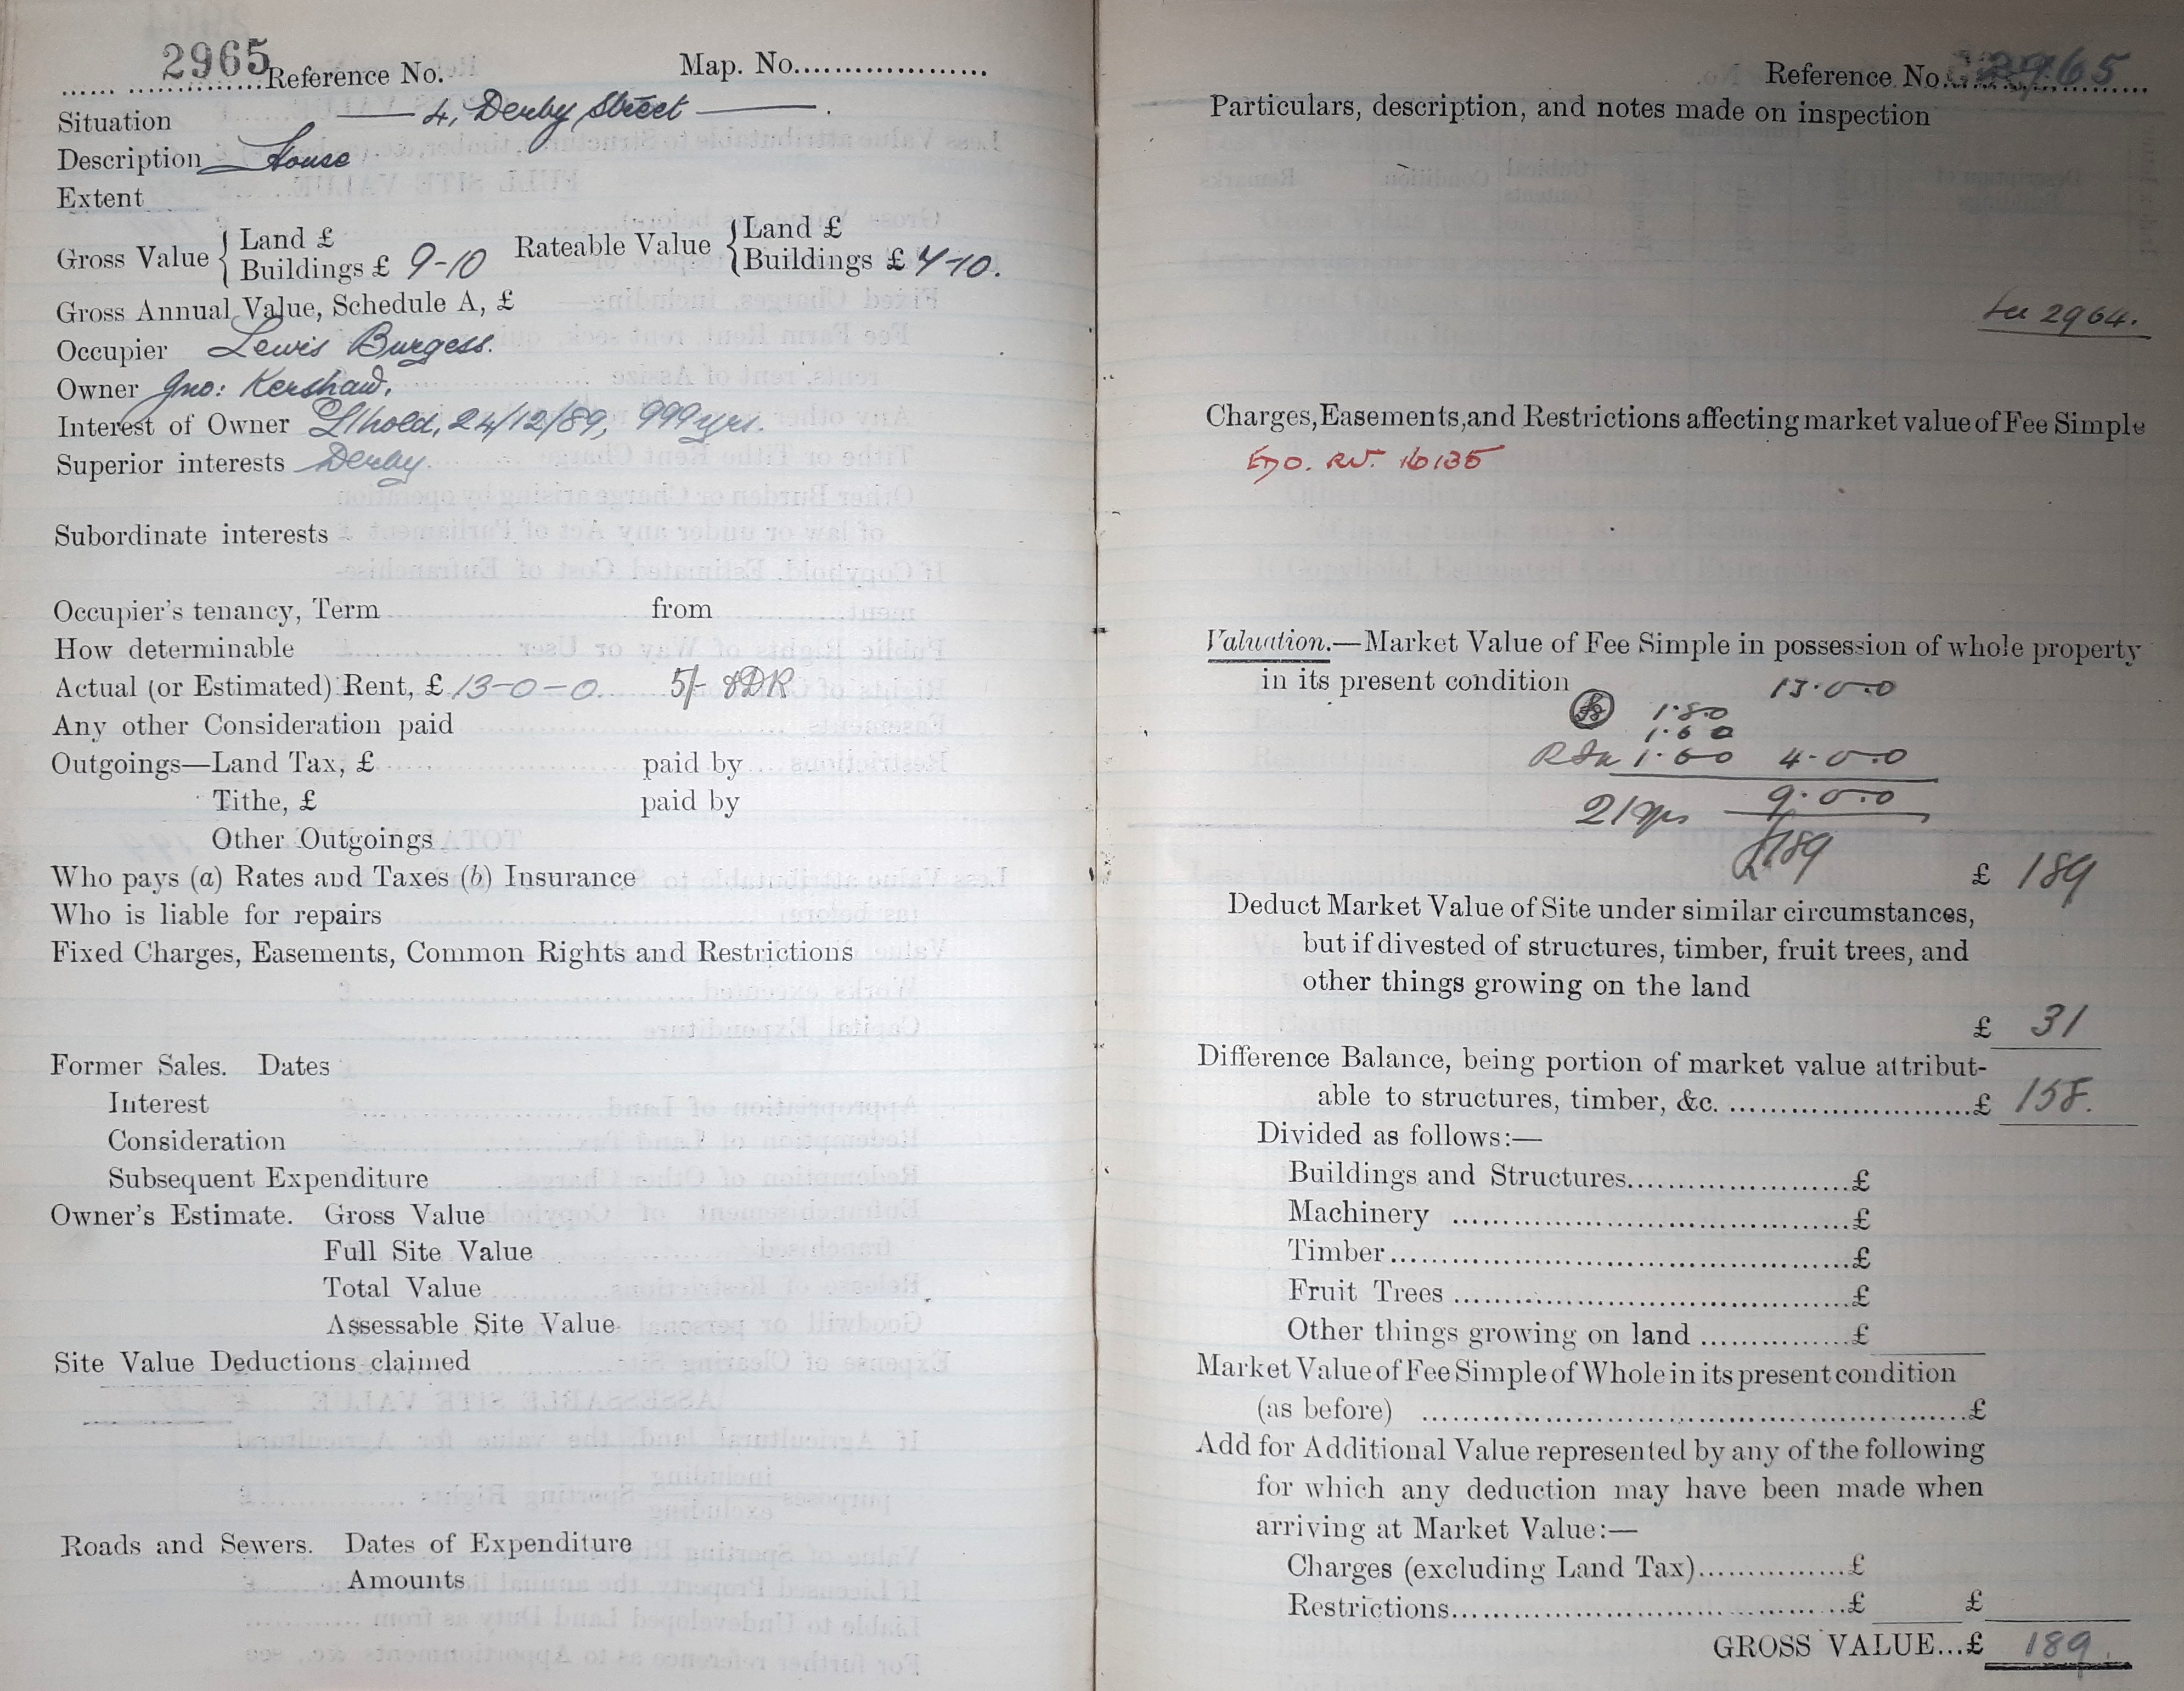 2965 Reference No. Map. No.
Situation 4, Derby Street
Description House
Extent
Gross Value { Land £
Buildings £ 9-10
Rateable Value { Land £
Buildings £ 7-10.
Gross Annual Value, Schedule A, £
Occupier Lewis Burgess.
Owner Jno: Kershaw.
Interest of Owner L/hold, 24/12/89, 999 yrs.
Superior interests Derby.
Subordinate interests
Occupier's tenancy, Term from
How determinable
Actual (or Estimated) Rent, £ 13-0-0. 5/-
Any other Consideration paid
Outgoings—Land Tax, £ paid by
Tithe, £ paid by
Other Outgoings
Who pays (a) Rates and Taxes (b) Insurance
Who is liable for repairs
Fixed Charges, Easements, Common Rights and Restrictions
Former Sales. Dates
Interest
Consideration
Subsequent Expenditure
Owner's Estimate. Gross Value
Full Site Value
Total Value
Assessable Site Value
Site Value Deductions claimed
Roads and Sewers. Dates of Expenditure
Amounts
Reference No. 2965
Particulars, description, and notes made on inspection
See 2964.
Charges, Easements, and Restrictions affecting market value of Fee Simple
Valuation.—Market Value of Fee Simple in possession of whole property
in its present condition 13.0.0
1.8.0
1.6.0
1.6.0 4.0.0
21 yrs 9.0.0
£189
£ 189
Deduct Market Value of Site under similar circumstances,
but if divested of structures, timber, fruit trees, and
other things growing on the land
£ 31
Difference Balance, being portion of market value attribut-
able to structures, timber, &c. £ 158.
Divided as follows:—
Buildings and Structures £
Machinery £
Timber £
Fruit Trees £
Other things growing on land £
Market Value of Fee Simple of Whole in its present condition
(as before) £
Add for Additional Value represented by any of the following
for which any deduction may have been made when
arriving at Market Value:—
Charges (excluding Land Tax) £
Restrictions £ £
GROSS VALUE...£ 189.